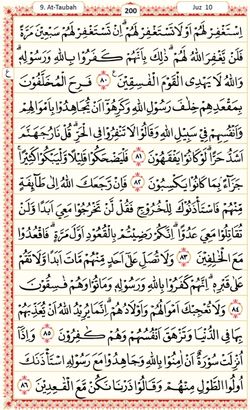 9. At-Taubah
200
Juz 10
اِسْتَغْفِرْ لَهُمْ اَوْ لَا تَسْتَغْفِرْ لَهُمْ اِنْ تَسْتَغْفِرْ لَهُمْ سَبْعِيْنَ مَرَّةً
فَلَنْ يَّغْفِرَ اللّٰهُ لَهُمْ ذٰلِكَ بِاَنَّهُمْ كَفَرُوْا بِاللّٰهِ وَرَسُوْلِهٖ
ع
وَاللّٰهُ لَا يَهْدِى الْقَوْمَ الْفٰسِقِيْنَ ٨٠ فَرِحَ الْمُخَلَّفُوْنَ
بِمَقْعَدِهِمْ خِلٰفَ رَسُوْلِ اللّٰهِ وَكَرِهُوْٓا اَنْ يُّجَاهِدُوْا بِاَمْوَالِهِمْ
وَاَنْفُسِهِمْ فِيْ سَبِيْلِ اللّٰهِ وَقَالُوْا لَا تَنْفِرُوْا فِى الْحَرِّ قُلْ نَارُ جَهَنَّمَ
اَشَدُّ حَرًّا لَوْ كَانُوْا يَفْقَهُوْنَ ٨١ فَلْيَضْحَكُوْا قَلِيْلًا وَّلْيَبْكُوْا كَثِيْرًا
جَزَاۤءً بِمَا كَانُوْا يَكْسِبُوْنَ ٨٢ فَاِنْ رَّجَعَكَ اللّٰهُ اِلٰى طَاۤىِٕفَةٍ
مِّنْهُمْ فَاسْتَأْذَنُوْكَ لِلْخُرُوْجِ فَقُلْ لَّنْ تَخْرُجُوْا مَعِيَ اَبَدًا وَّلَنْ
تُقَاتِلُوْا مَعِيَ عَدُوًّا اِنَّكُمْ رَضِيْتُمْ بِالْقُعُوْدِ اَوَّلَ مَرَّةٍ فَاقْعُدُوْا
مَعَ الْخٰلِفِيْنَ ٨٣ وَلَا تُصَلِّ عَلٰٓى اَحَدٍ مِّنْهُمْ مَّاتَ اَبَدًا وَّلَا تَقُمْ
عَلٰى قَبْرِهٖ اِنَّهُمْ كَفَرُوْا بِاللّٰهِ وَرَسُوْلِهٖ وَمَاتُوْا وَهُمْ فٰسِقُوْنَ
٨٤ وَلَا تُعْجِبْكَ اَمْوَالُهُمْ وَاَوْلَادُهُمْ اِنَّمَا يُرِيْدُ اللّٰهُ اَنْ يُّعَذِّبَهُمْ
بِهَا فِى الدُّنْيَا وَتَزْهَقَ اَنْفُسُهُمْ وَهُمْ كٰفِرُوْنَ ٨٥ وَاِذَآ
اُنْزِلَتْ سُوْرَةٌ اَنْ اٰمِنُوْا بِاللّٰهِ وَجَاهِدُوْا مَعَ رَسُوْلِهِ اسْتَأْذَنَكَ
اُولُوا الطَّوْلِ مِنْهُمْ وَقَالُوْا ذَرْنَا نَكُنْ مَّعَ الْقٰعِدِيْنَ ٨٦